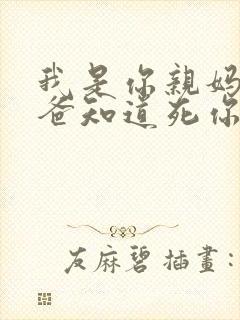 我是你親媽
爸知道死你
友麻碧 插畫: